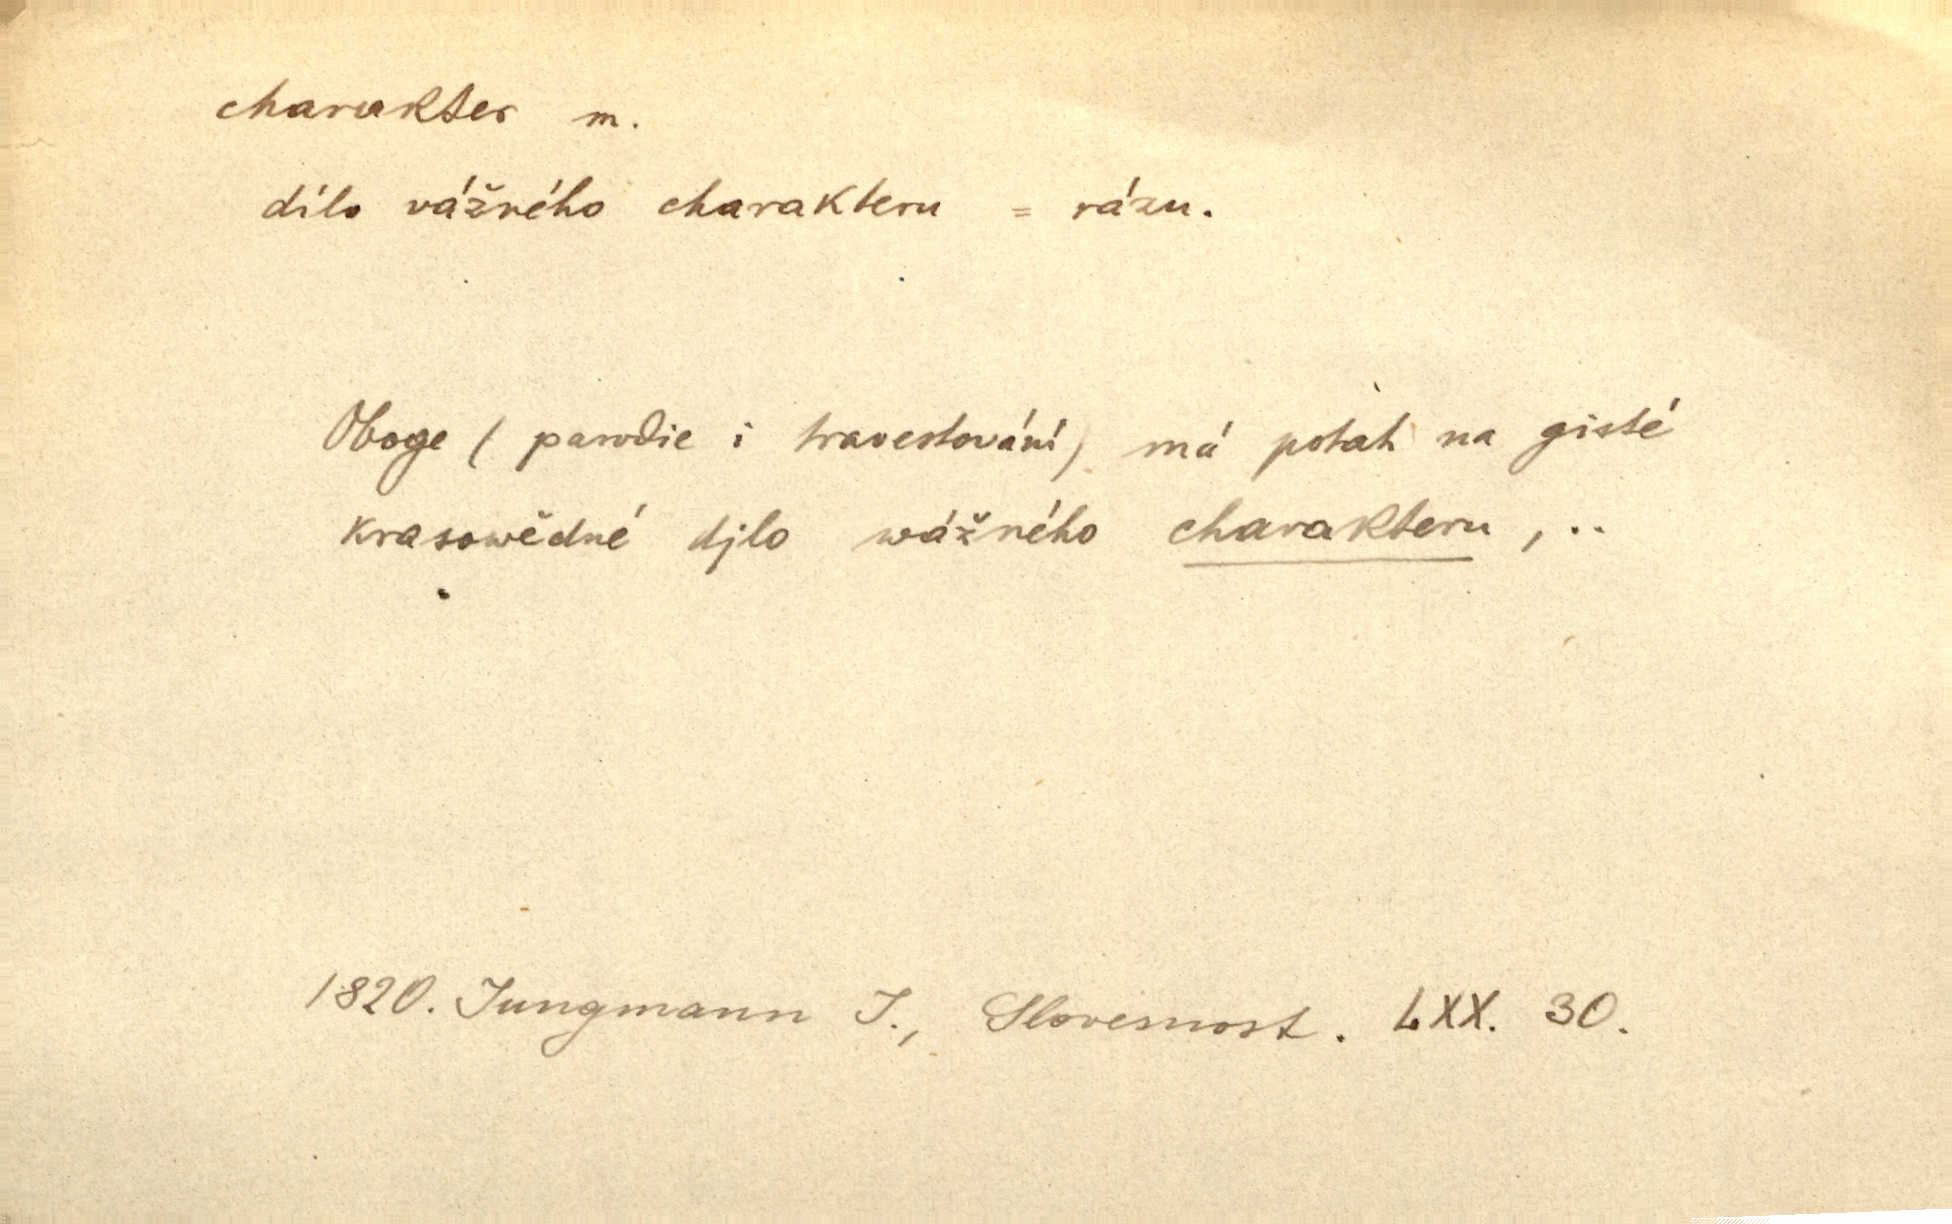 charakter m.
dílo vážného charakteru = rázu.
Oboge ( parodie i travestování) má potah na gisté
krasowědné djlo wážného charakteru, ..
1820. Jungmann J., Slovesnost. LXX. 30.